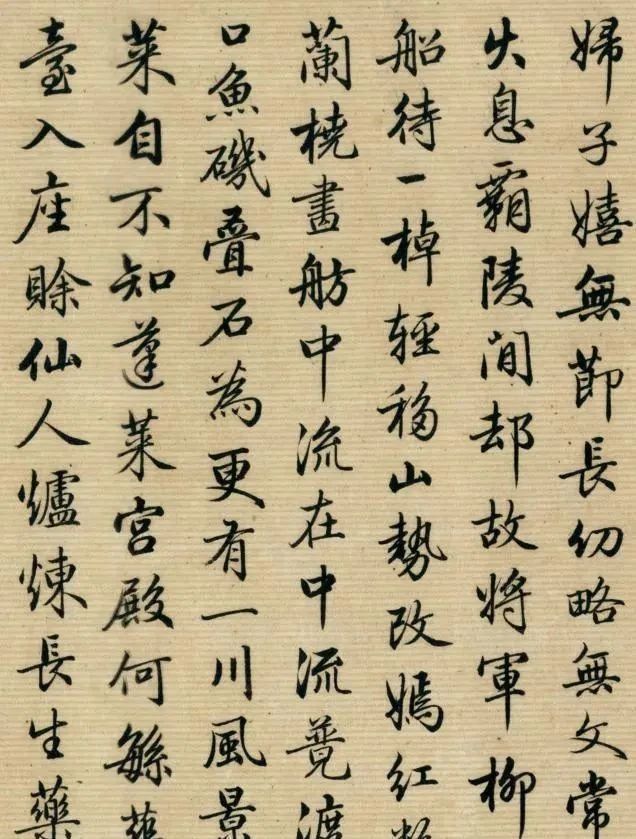 婦子嬉無節長幼略無文常
火息霸陵閒却故將軍柳
船待一棹輕移山勢改嫣紅
蘭橈畫舫中流在中流渡
口魚磯疊石為更有一川風景
萊自不知蓬萊宮殿何繇
臺入座賖仙人爐煉長生藥